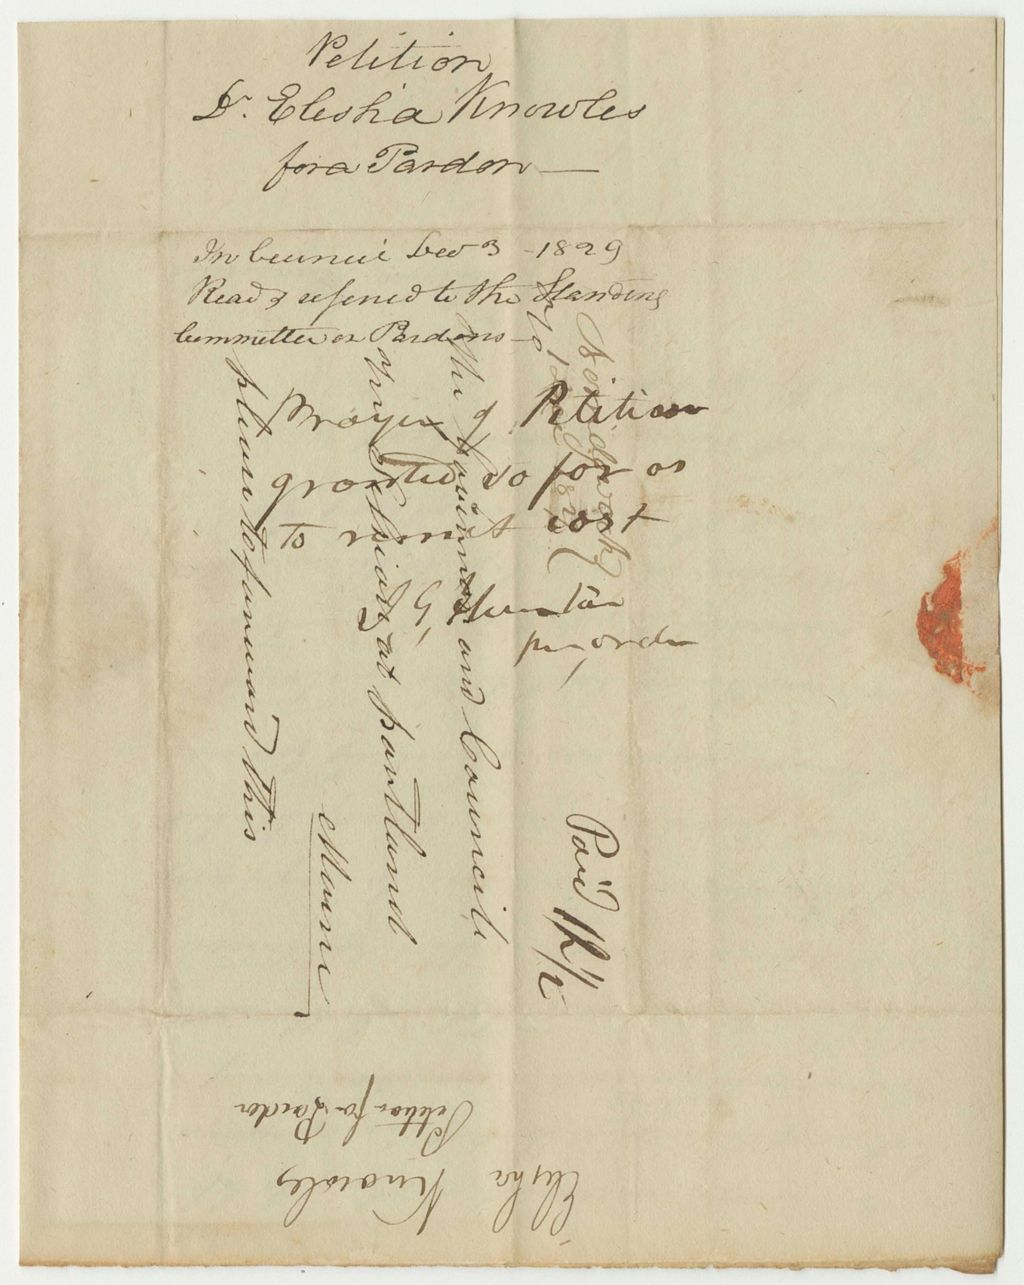 Petition
Dr. Elesha Knowles
for a Pardon—
In Council Dec 3 - 1829
Read & referred to the Standing
Committee on Pardons—
Prayer of Petition
granted so far as
to remit cost
Hunton
per order
Norridgewock
The Governor and Council
of the State at Portland
Maine
please to forward this
Paid 12½
Elisha Knowles
Petition for Pardon